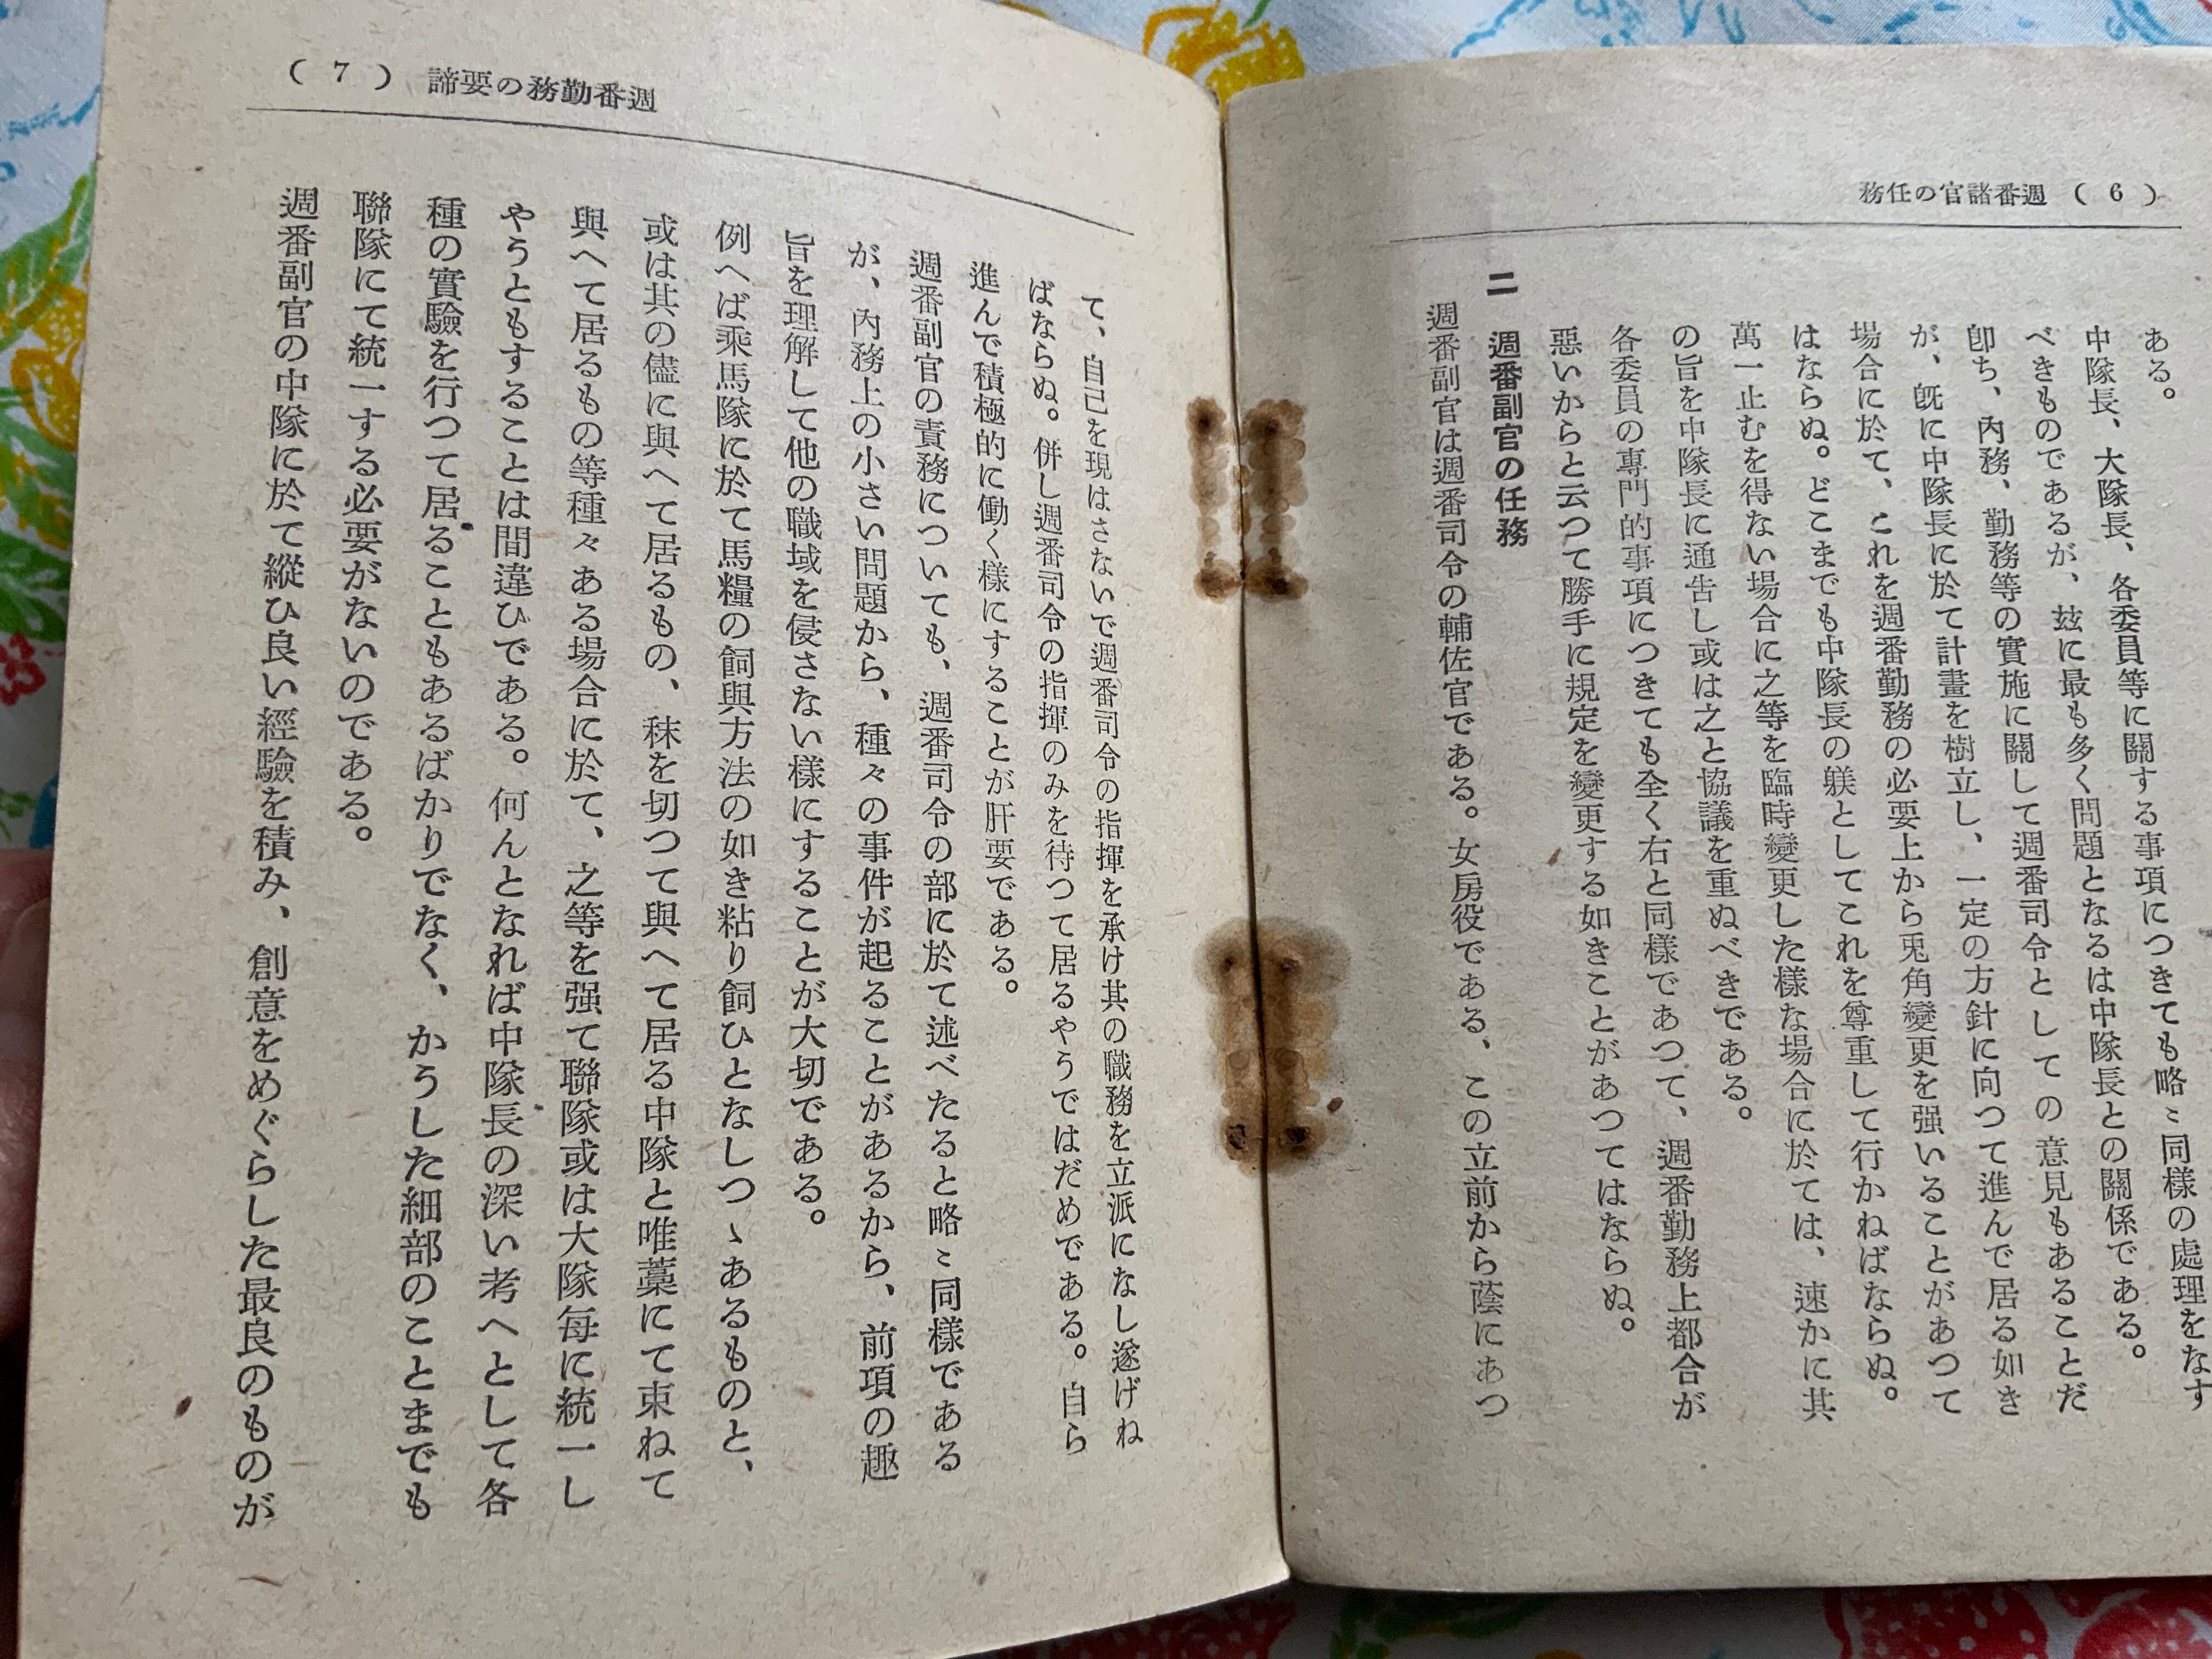 週番諸官の任務 ( 6 )
ある。
中隊長、大隊長、各委員等に關する事項につきても略ミ同樣の處理をなす
べきものであるが、玆に最も多く問題となるは中隊長との關係である。
卽ち、內務、勤務等の實施に關して週番司令としての意見もあることだ
が、旣に中隊長に於て計畫を樹立し、一定の方針に向つて進んで居る如き
場合に於て、これを週番勤務の必要上から兎角變更を强いることがあつて
はならぬ。どこまでも中隊長の躾としてこれを尊重して行かねばならぬ。
萬一止むを得ない場合に之等を臨時變更した樣な場合に於ては、速かに其
の旨を中隊長に通告し或は之と協議を重ぬべきである。
各委員の專門的事項につきても全く右と同樣であつて、週番勤務上都合が
惡いからと云つて勝手に規定を變更する如きことがあつてはならぬ。
二 週番副官の任務
週番副官は週番司令の輔佐官である。女房役である、この立前から蔭にあつ
週番勤務の要諦 ( 7 )
て、自己を現はさないで週番司令の指揮を承け其の職務を立派になし遂げね
ばならぬ。併し週番司令の指揮のみを待つて居るやうではだめである。自ら
進んで積極的に働く樣にすることが肝要である。
週番副官の責務についても、週番司令の部に於て述べたると略ミ同樣である
が、內務上の小さい問題から、種々の事件が起ることがあるから、前項の趣
旨を理解して他の職域を侵さない樣にすることが大切である。
例へば乘馬隊に於て馬糧の飼與方法の如き粘り飼ひとなしつゝあるものと、
或は其の儘に與へて居るもの、秣を切つて與へて居る中隊と唯藁にて束ねて
與へて居るもの等種々ある場合に於て、之等を强て聯隊或は大隊每に統一し
やうともすることは間違ひである。何んとなれば中隊長の深い考へとして各
種の實驗を行つて居ることもあるばかりでなく、かうした細部のことまでも
聯隊にて統一する必要がないのである。
週番副官の中隊に於て縱ひ良い經驗を積み、創意をめぐらした最良のものが